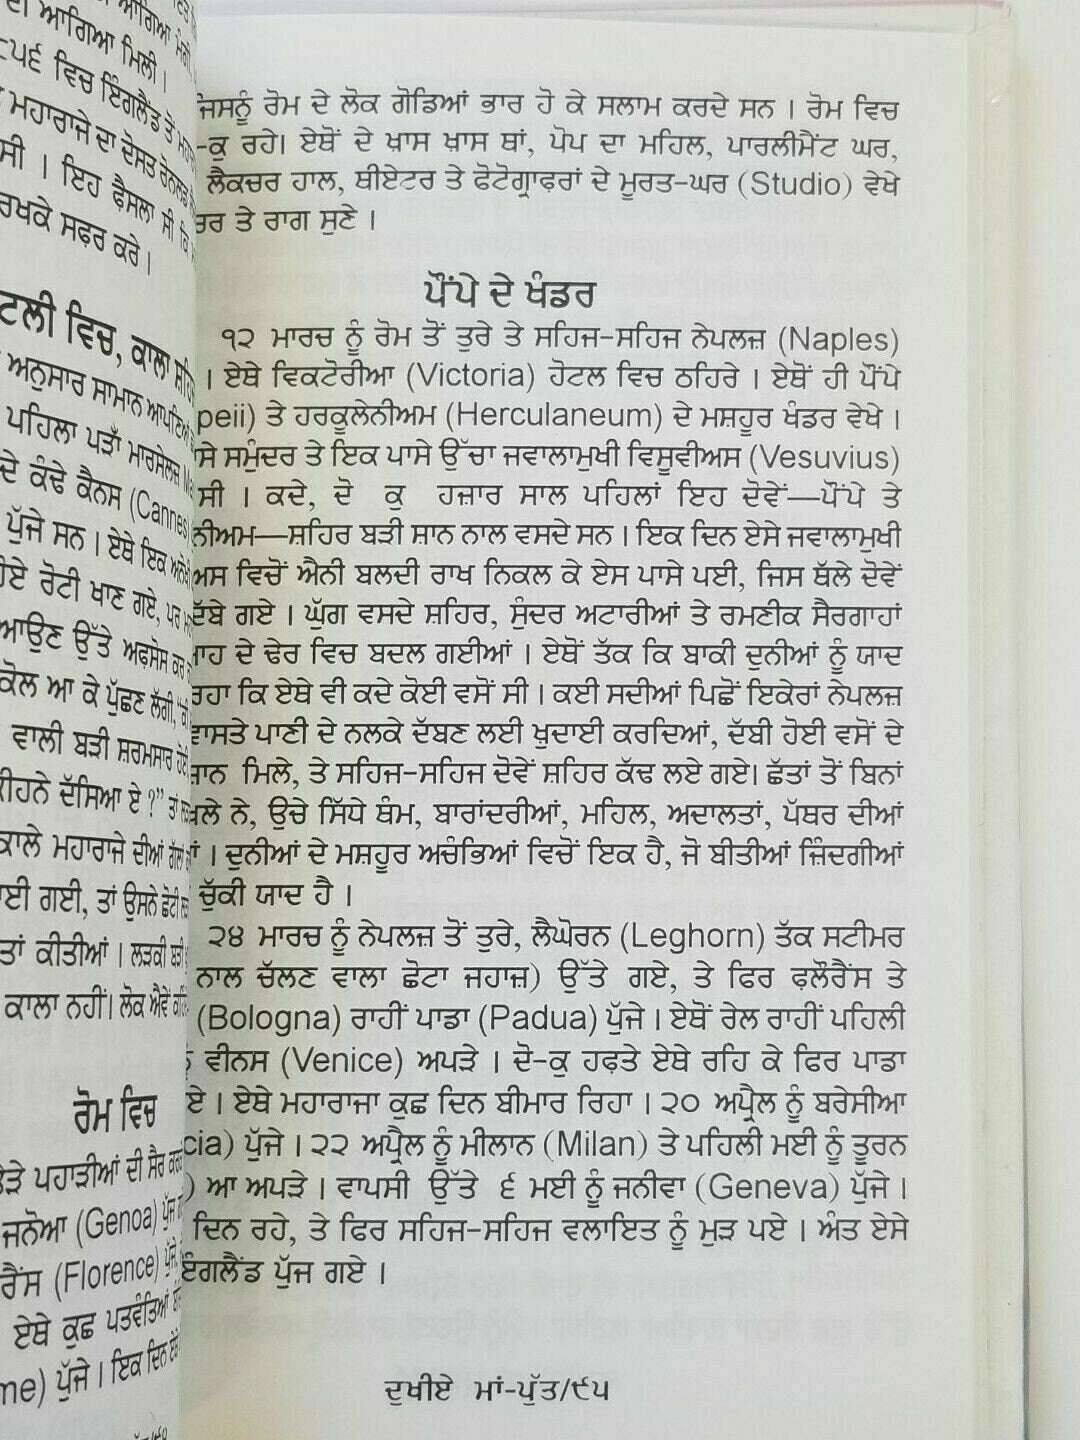 ਦੀ ਆਗਿਆ ਮਿਲੀ ।
ਵਿਚ ਇੰਗਲੈਂਡ ਤੋਂ
ਮਹਾਰਾਜੇ ਦਾ ਦੋਸਤ ਰੋਨਲਡ
ਸੀ । ਇਹ ਫ਼ੈਸਲਾ ਸੀ ਕਿ
ਰਖਕੇ ਸਫਰ ਕਰੇ ।
ਵਿਚ, ਕਾਲਾ
ਅਨੁਸਾਰ ਸਾਮਾਨ
ਪਹਿਲਾ ਪੜਾਂ ਮਾਰਸੇਲਜ਼
ਦੇ ਕੰਢੇ ਕੈਨਸ (Cannes)
ਪੁੱਜੇ ਸਨ । ਏਥੇ ਇਕ
ਰੋਟੀ ਖਾਣ ਗਏ, ਪਰ
ਆਉਣ ਉੱਤੇ ਅਫਸੋਸ ਕਰ
ਕੋਲ ਆ ਕੇ ਪੁੱਛਣ ਲੱਗੀ,
ਵਾਲੀ ਬੜੀ ਸ਼ਰਮਸਾਰ ਹੋਈ
ਕੀਹਨੇ ਦੱਸਿਆ ਏ ?” ਤਾਂ
ਕਾਲੇ ਮਹਾਰਾਜੇ ਦੀਆਂ ਗੱਲਾਂ
ਗਈ, ਤਾਂ ਉਸਨੇ ਛੋਟੀ
ਤਾਂ ਕੀਤੀਆਂ । ਲੜਕੀ ਬੜੀ
ਕਾਲਾ ਨਹੀਂ। ਲੋਕ ਐਵੇਂ
ਰੋਮ ਵਿਚ
ਪਹਾੜੀਆਂ ਦੀ ਸੈਰ
ਜਨੋਆ (Genoa) ਪੁੱਜ
(Florence) ਪੁੱਜੇ,
ਏਥੇ ਕੁਛ ਪਤਵੰਤਿਆਂ
ਪੁੱਜੇ । ਇਕ ਦਿਨ ਏਥੇ
ਜਿਸਨੂੰ ਰੋਮ ਦੇ ਲੋਕ ਗੋਡਿਆਂ ਭਾਰ ਹੋ ਕੇ ਸਲਾਮ ਕਰਦੇ ਸਨ । ਰੋਮ ਵਿਚ
-ਕੁ ਰਹੇ। ਏਥੋਂ ਦੇ ਖ਼ਾਸ ਖ਼ਾਸ ਥਾਂ, ਪੋਪ ਦਾ ਮਹਿਲ, ਪਾਰਲੀਮੈਂਟ ਘਰ,
ਲੈਕਚਰ ਹਾਲ, ਥੀਏਟਰ ਤੇ ਫੋਟੋਗ੍ਰਾਫ਼ਰਾਂ ਦੇ ਮੂਰਤ-ਘਰ (Studio) ਵੇਖੇ
ਤੇ ਰਾਗ ਸੁਣੇ ।
ਪੌਂਪੇ ਦੇ ਖੰਡਰ
੧੨ ਮਾਰਚ ਨੂੰ ਰੋਮ ਤੋਂ ਤੁਰੇ ਤੇ ਸਹਿਜ-ਸਹਿਜ ਨੇਪਲਜ਼ (Naples)
। ਏਥੇ ਵਿਕਟੋਰੀਆ (Victoria) ਹੋਟਲ ਵਿਚ ਠਹਿਰੇ । ਏਥੋਂ ਹੀ ਪੌਂਪੇ
peii) ਤੇ ਹਰਕੂਲੇਨੀਅਮ (Herculaneum) ਦੇ ਮਸ਼ਹੂਰ ਖੰਡਰ ਵੇਖੇ ।
ਸੇ ਸਮੁੰਦਰ ਤੇ ਇਕ ਪਾਸੇ ਉੱਚਾ ਜਵਾਲਾਮੁਖੀ ਵਿਸੂਵੀਅਸ (Vesuvius)
ਸੀ । ਕਦੇ, ਦੋ ਕੁ ਹਜ਼ਾਰ ਸਾਲ ਪਹਿਲਾਂ ਇਹ ਦੋਵੇਂ—ਪੌਂਪੇ ਤੇ
ਨੀਅਮ—ਸ਼ਹਿਰ ਬੜੀ ਸ਼ਾਨ ਨਾਲ ਵਸਦੇ ਸਨ । ਇਕ ਦਿਨ ਏਸੇ ਜਵਾਲਾਮੁਖੀ
ਅਸ ਵਿਚੋਂ ਐਨੀ ਬਲਦੀ ਰਾਖ ਨਿਕਲ ਕੇ ਏਸ ਪਾਸੇ ਪਈ, ਜਿਸ ਥੱਲੇ ਦੋਵੇਂ
ਦੱਬੇ ਗਏ । ਘੁੱਗ ਵਸਦੇ ਸ਼ਹਿਰ, ਸੁੰਦਰ ਅਟਾਰੀਆਂ ਤੇ ਰਮਣੀਕ ਸੈਰਗਾਹਾਂ
ਦੇ ਢੇਰ ਵਿਚ ਬਦਲ ਗਈਆਂ । ਏਥੋਂ ਤੱਕ ਕਿ ਬਾਕੀ ਦੁਨੀਆਂ ਨੂੰ ਯਾਦ
ਰਹਾ ਕਿ ਏਥੇ ਵੀ ਕਦੇ ਕੋਈ ਵਸੋਂ ਸੀ । ਕਈ ਸਦੀਆਂ ਪਿਛੋਂ ਇਕੇਰਾਂ ਨੇਪਲਜ਼
ਵਾਸਤੇ ਪਾਣੀ ਦੇ ਨਲਕੇ ਦੱਬਣ ਲਈ ਖੁਦਾਈ ਕਰਦਿਆਂ, ਦੱਬੀ ਹੋਈ ਵਸੋਂ ਦੇ
ਮਿਲੇ, ਤੇ ਸਹਿਜ-ਸਹਿਜ ਦੋਵੇਂ ਸ਼ਹਿਰ ਕੱਢ ਲਏ ਗਏ। ਛੱਤਾਂ ਤੋਂ ਬਿਨਾਂ
ਨੇ, ਉਚੇ ਸਿੱਧੇ ਥੰਮ, ਬਾਰਾਂਦਰੀਆਂ, ਮਹਿਲ, ਅਦਾਲਤਾਂ, ਪੱਥਰ ਦੀਆਂ
। ਦੁਨੀਆਂ ਦੇ ਮਸ਼ਹੂਰ ਅਚੰਭਿਆਂ ਵਿਚੋਂ ਇਕ ਹੈ, ਜੋ ਬੀਤੀਆਂ ਜ਼ਿੰਦਗੀਆਂ
ਚੁੱਕੀ ਯਾਦ ਹੈ ।
੨੪ ਮਾਰਚ ਨੂੰ ਨੇਪਲਜ਼ ਤੋਂ ਤੁਰੇ, ਲੈਘੋਰਨ (Leghorn) ਤੱਕ ਸਟੀਮਰ
ਨਾਲ ਚੱਲਣ ਵਾਲਾ ਛੋਟਾ ਜਹਾਜ਼) ਉੱਤੇ ਗਏ, ਤੇ ਫਿਰ ਫ਼ਲੌਰੈਂਸ ਤੇ
(Bologna) ਰਾਹੀਂ ਪਾਡਾ (Padua) ਪੁੱਜੇ । ਏਥੋਂ ਰੇਲ ਰਾਹੀਂ ਪਹਿਲੀ
ਵੀਨਸ (Venice) ਅਪੜੇ । ਦੋ-ਕੁ ਹਫ਼ਤੇ ਏਥੇ ਰਹਿ ਕੇ ਫਿਰ ਪਾਡਾ
ਏ । ਏਥੇ ਮਹਾਰਾਜਾ ਕੁਛ ਦਿਨ ਬੀਮਾਰ ਰਿਹਾ । ੨੦ ਅਪ੍ਰੈਲ ਨੂੰ ਬਰੇਸੀਆ
cia) ਪੁੱਜੇ । ੨੨ ਅਪ੍ਰੈਲ ਨੂੰ ਮੀਲਾਨ (Milan) ਤੇ ਪਹਿਲੀ ਮਈ ਨੂੰ ਤੂਰਨ
) ਆ ਅਪੜੇ । ਵਾਪਸੀ ਉੱਤੇ ੬ ਮਈ ਨੂੰ ਜਨੀਵਾ (Geneva) ਪੁੱਜੇ ।
ਦਿਨ ਰਹੇ, ਤੇ ਫਿਰ ਸਹਿਜ-ਸਹਿਜ ਵਲਾਇਤ ਨੂੰ ਮੁੜ ਪਏ । ਅੰਤ ਏਸੇ
ਇੰਗਲੈਂਡ ਪੁੱਜ ਗਏ ।
ਦੁਖੀਏ ਮਾਂ-ਪੁੱਤ/੯੫